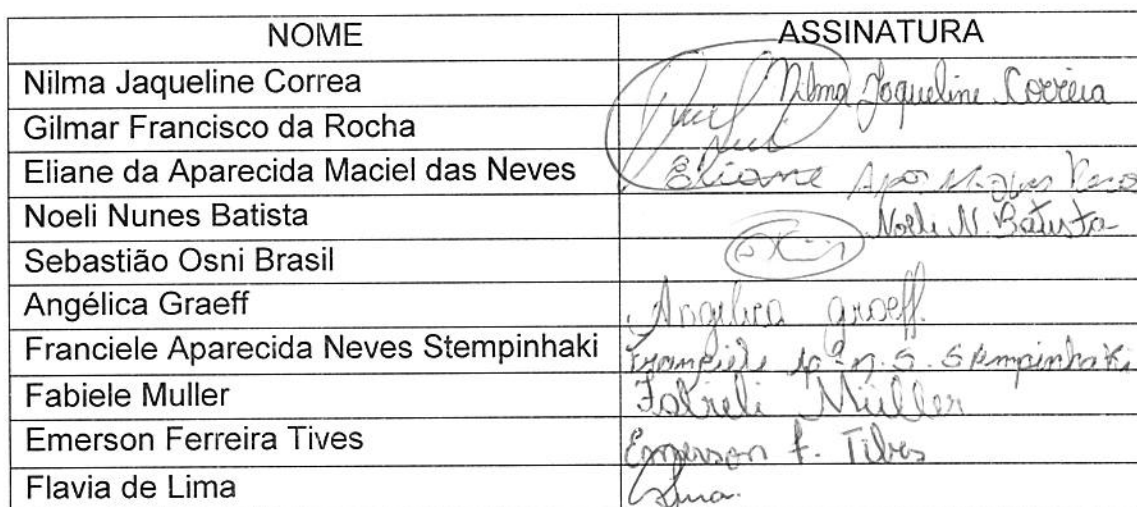 NOME ASSINATURA
Nilma Jaqueline Correa Nilma Jaqueline Correia
Gilmar Francisco da Rocha
Eliane da Aparecida Maciel das Neves Eliane
Noeli Nunes Batista Noeli N. Batista
Sebastião Osni Brasil
Angélica Graeff Angelica Graeff.
Franciele Aparecida Neves Stempinhaki Franciele Ap ª N. S. Stempinhaki
Fabiele Muller Fabieli Müller
Emerson Ferreira Tives Emerson F. Tibes
Flavia de Lima